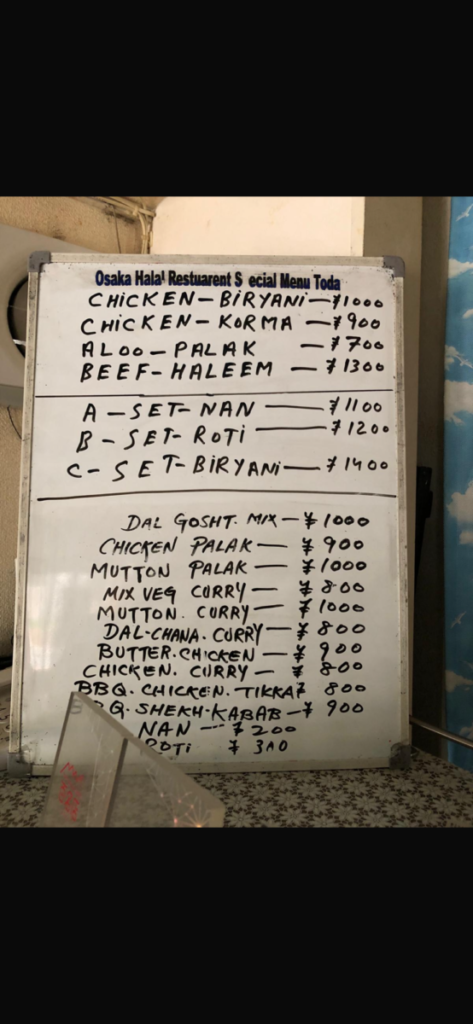 Osaka Halal Restuarent S ecial Menu Toda
CHICKEN-BIRYANI-¥1000
CHICKEN-KORMA -¥900
ALOO-PALAK -¥700
BEEF-HALEEM -¥1300
A-SET-NAN -¥1100
B-SET-ROTI -¥1200
C-SET-BIRYANI-¥1400
DAL GOSHT. MIX-¥1000
CHICKEN PALAK-¥900
MUTTON PALAK-¥1000
MIX VEG CURRY-¥800
MUTTON. CURRY-¥1000
DAL-CHANA. CURRY-¥800
BUTTER. CHICKEN-¥900
CHICKEN. CURRY-¥800
BBQ. CHICKEN. TIKKA¥ 800
BBQ. SHEKH-KABAB-¥900
NAN ---¥200
ROTI ¥300